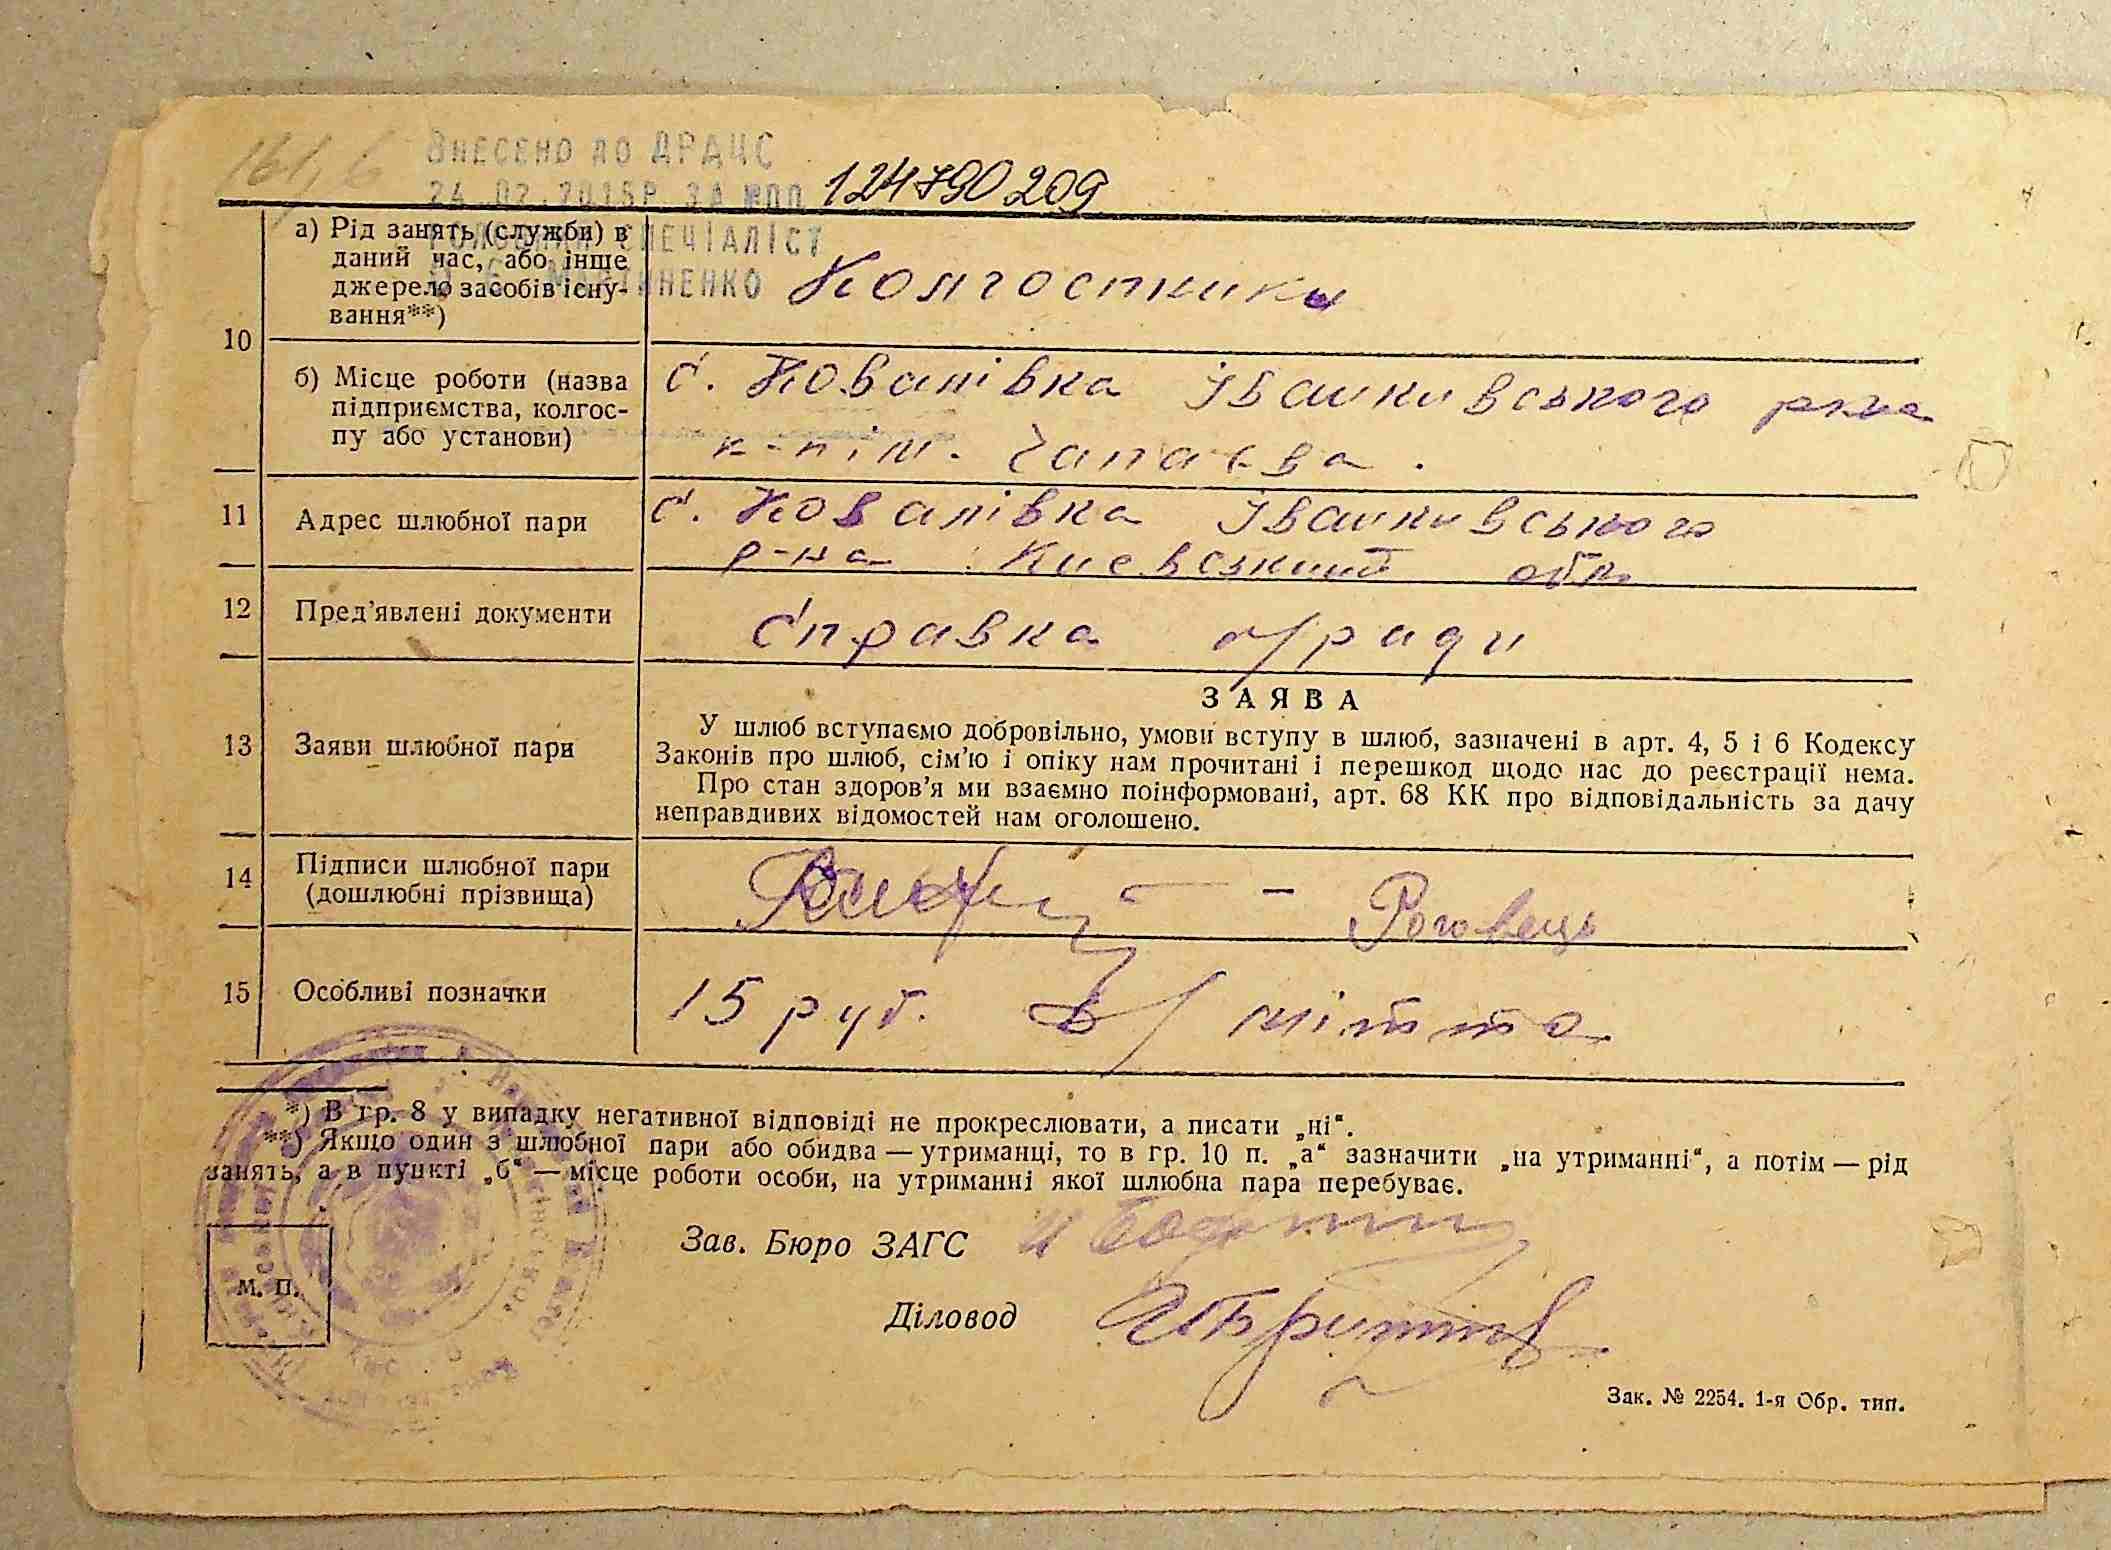 161, б
ВНЕСЕНО ДО ДРАЦС
24.02.2015Р. ЗА №ПП 124790209
ГОЛОВНИЙ СПЕЦІАЛІСТ
МАРТИНЕНКО
10
а) Рід занять (служби) в
даний час, або інше
джерело засобів існу-
вання**)
Колгоспники
б) Місце роботи (назва
підприємства, колгос-
пу або установи)
с. Ковалівка Іванківського р-на
к-п ім. Чапаєва.
11 Адрес шлюбної пари
с. Ковалівка Іванківського
р-на Києвський обл.
12 Пред’явлені документи
Справка с/ради
13 Заяви шлюбної пари
ЗАЯВА
У шлюб вступаємо добровільно, умови вступу в шлюб, зазначені в арт. 4, 5 і 6 Кодексу
Законів про шлюб, сім’ю і опіку нам прочитані і перешкод щодо нас до реєстрації нема.
Про стан здоров’я ми взаємно поінформовані, арт. 68 КК про відповідальність за дачу
неправдивих відомостей нам оголошено.
14 Підписи шлюбної пари
(дошлюбні прізвища)
— Роговець
15 Особливі позначки
15 руб.
*) В гр. 8 у випадку негативної відповіді не прокреслювати, а писати „ні“.
**) Якщо один з шлюбної пари або обидва — утриманці, то в гр. 10 п. „а“ зазначити „на утриманні“, а потім — рід
занять, а в пункті „б“ — місце роботи особи, на утриманні якої шлюбна пара перебуває.
Зав. Бюро ЗАГС
М. П.
Діловод
Зак. № 2254. 1-я Обр. тип.